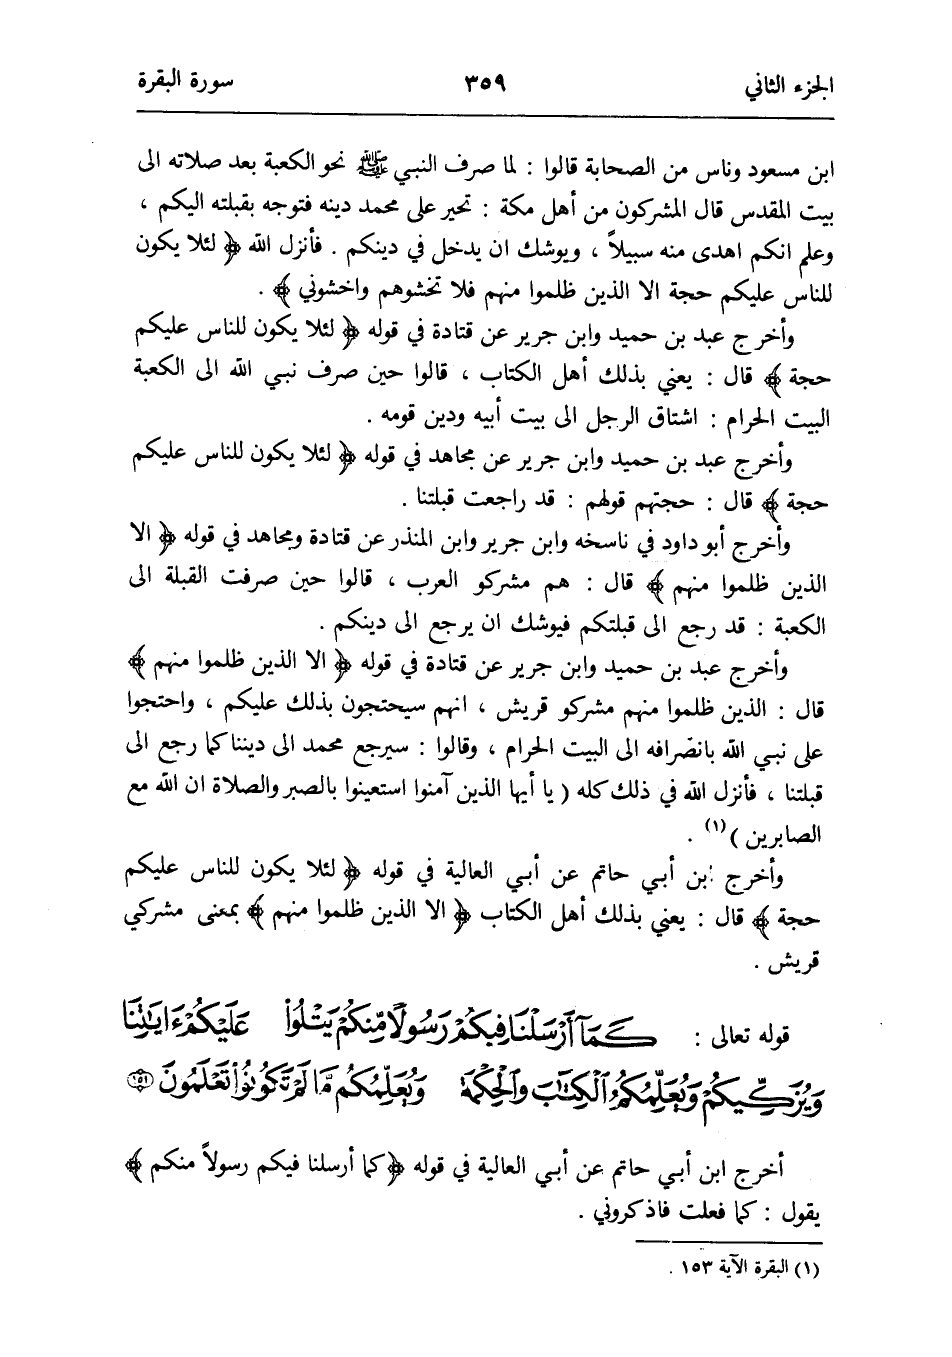 الجزء الثاني ٣٥٩ سورة البقرة
ابن مسعود وناس من الصحابة قالوا : لما صرف النبي ﷺ نحو الكعبة بعد صلاته الى
بيت المقدس قال المشركون من أهل مكة : تحير على محمد دينه فتوجه بقبلته اليكم ،
وعلم انكم اهدى منه سبيلاً ، ويوشك ان يدخل في دينكم . فأنزل الله ﴿ لئلا يكون
للناس عليكم حجة الا الذين ظلموا منهم فلا تخشوهم واخشوني ﴾ .
وأخرج عبد بن حميد وابن جرير عن قتادة في قوله ﴿ لئلا يكون للناس عليكم
حجة ﴾ قال : يعني بذلك أهل الكتاب ، قالوا حين صرف نبي الله الى الكعبة
البيت الحرام : اشتاق الرجل الى بيت أبيه ودين قومه .
وأخرج عبد بن حميد وابن جرير عن مجاهد في قوله ﴿ لئلا يكون للناس عليكم
حجة ﴾ قال : حجتهم قولهم : قد راجعت قبلتنا .
وأخرج أبو داود في ناسخه وابن جرير وابن المنذر عن قتادة ومجاهد في قوله ﴿ الا
الذين ظلموا منهم ﴾ قال : هم مشركو العرب ، قالوا حين صرفت القبلة الى
الكعبة : قد رجع الى قبلتكم فيوشك ان يرجع الى دينكم .
وأخرج عبد بن حميد وابن جرير عن قتادة في قوله ﴿ الا الذين ظلموا منهم ﴾
قال : الذين ظلموا منهم مشركو قريش ، انهم سيحتجون بذلك عليكم ، واحتجوا
على نبي الله بانصرافه الى البيت الحرام ، وقالوا : سيرجع محمد الى ديننا كما رجع الى
قبلتنا ، فأنزل الله في ذلك كله ( يا أيها الذين آمنوا استعينوا بالصبر والصلاة ان الله مع
الصابرين )(١) .
وأخرج ابن أبي حاتم عن أبي العالية في قوله ﴿ لئلا يكون للناس عليكم
حجة ﴾ قال : يعني بذلك أهل الكتاب ﴿ الا الذين ظلموا منهم ﴾ بمعنى مشركي
قريش .
قوله تعالى : كَمَآ أَرْسَلْنَا فِيكُمْ رَسُولًا مِّنكُمْ يَتْلُوا۟ عَلَيْكُمْ ءَايَٰتِنَا
وَيُزَكِّيكُمْ وَيُعَلِّمُكُمُ ٱلْكِتَٰبَ وَٱلْحِكْمَةَ وَيُعَلِّمُكُم مَّا لَمْ تَكُونُوا۟ تَعْلَمُونَ ١٥١
أخرج ابن أبي حاتم عن أبي العالية في قوله ﴿ كما أرسلنا فيكم رسولاً منكم ﴾
يقول : كما فعلت فاذكروني .
(١) البقرة الآية ١٥٣ .